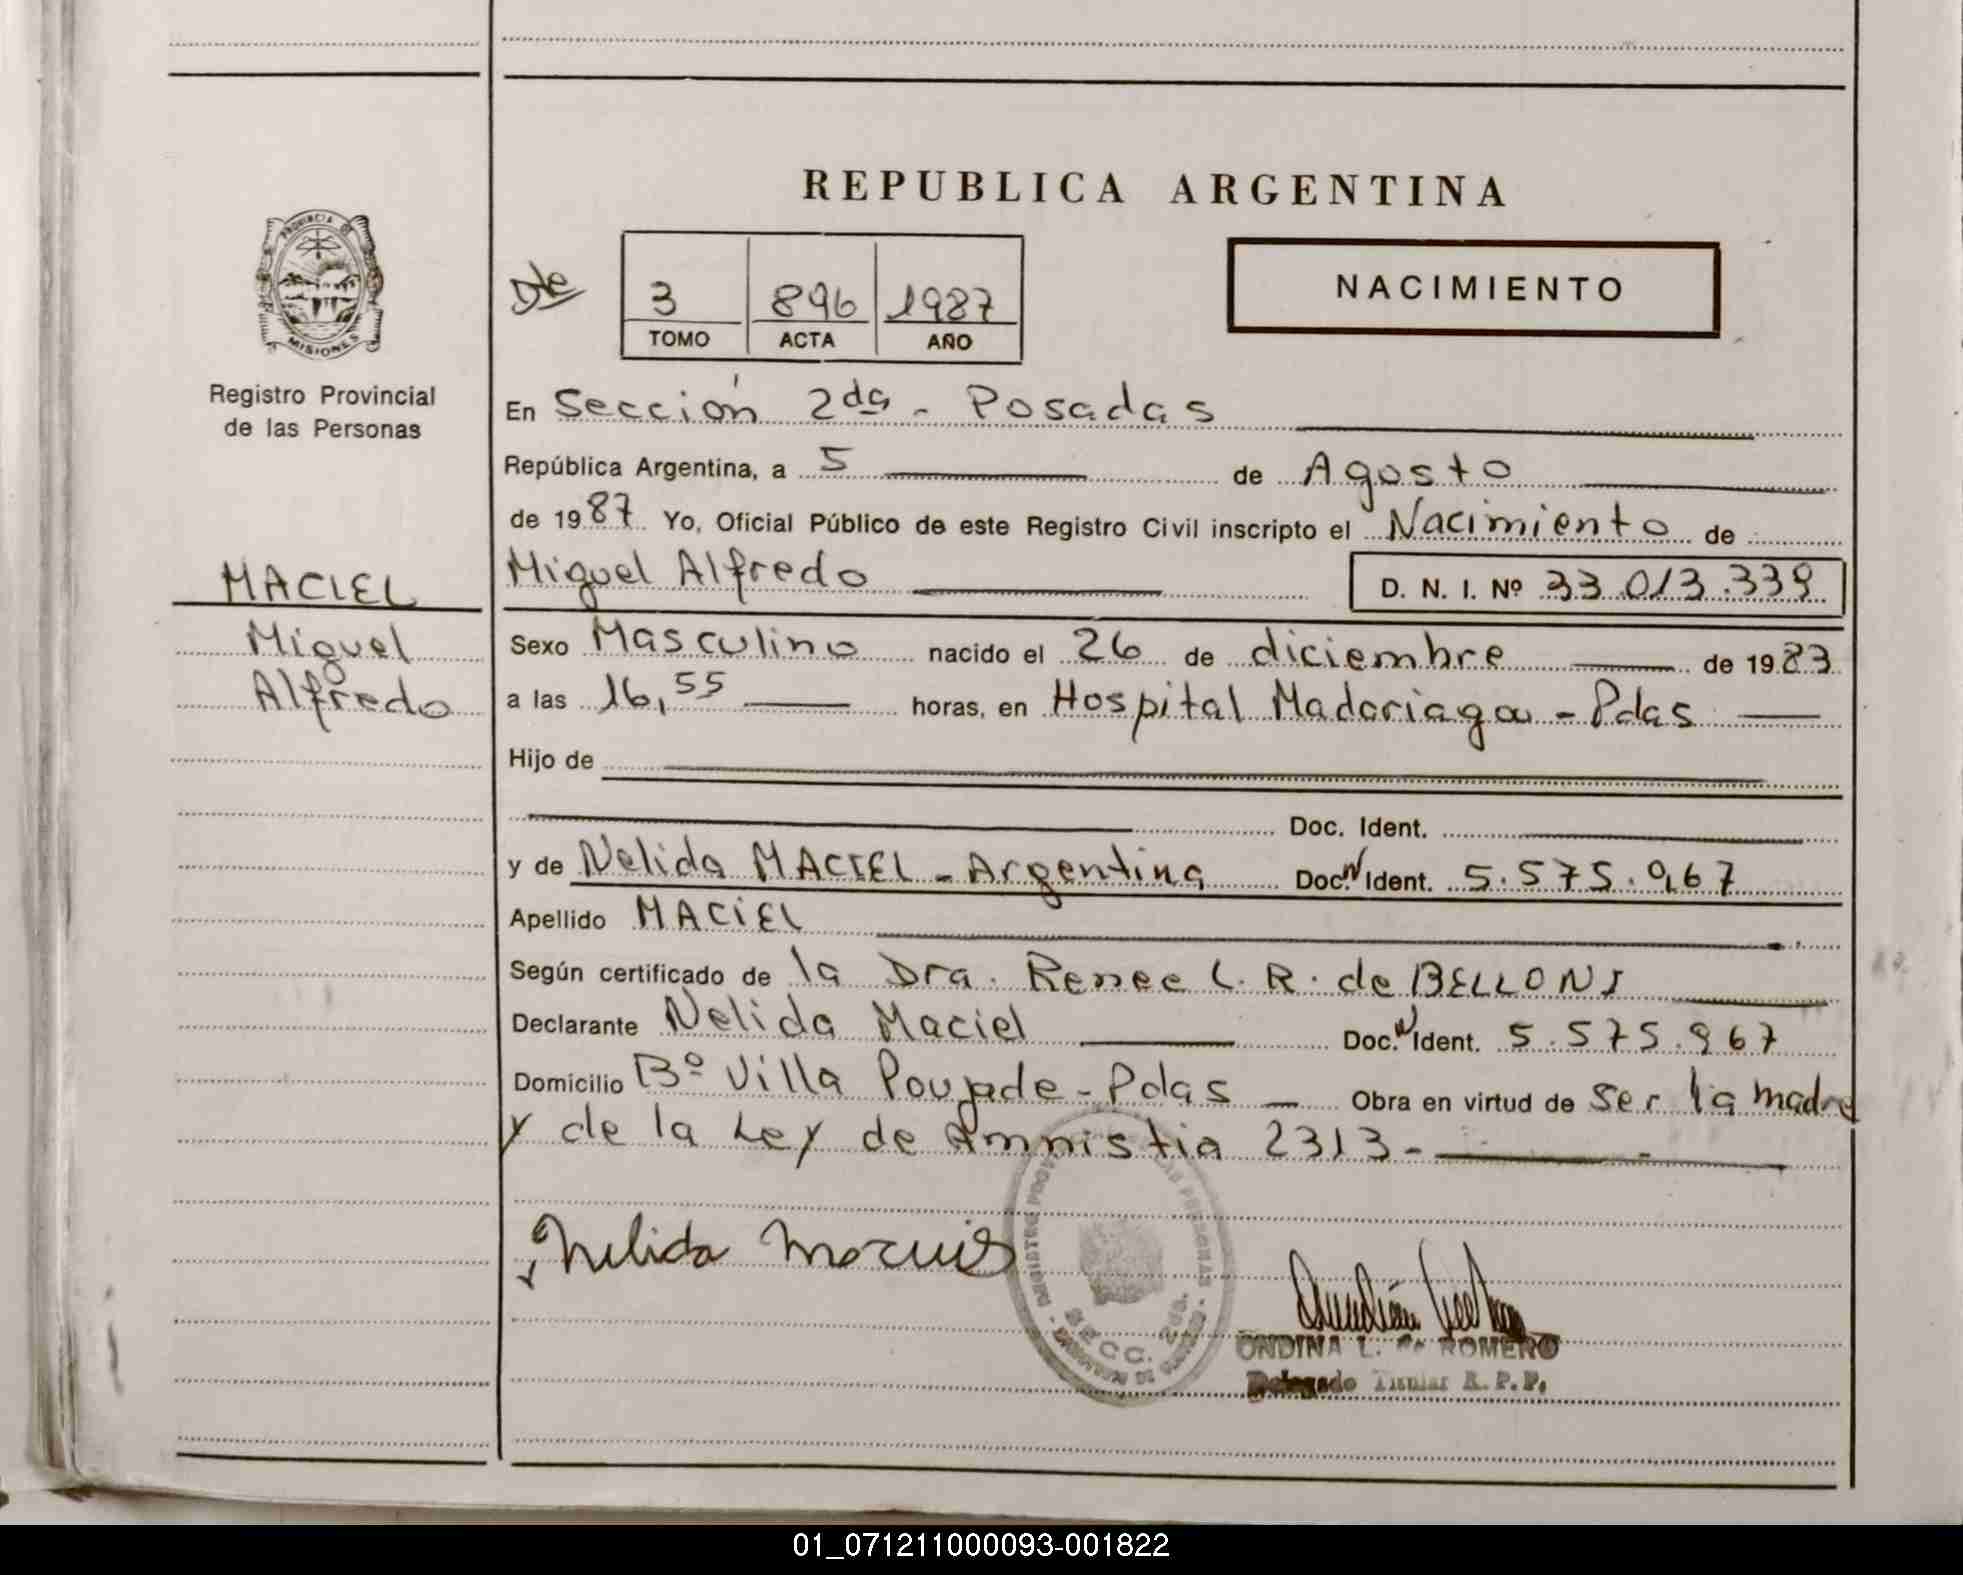 REPUBLICA ARGENTINA
PROVINCIA DE
MISIONES
Registro Provincial
de las Personas
Dte
3 896 1987
TOMO ACTA AÑO
NACIMIENTO
En Sección 2da - Posadas
República Argentina, a 5 de Agosto
de 1987 Yo, Oficial Público de este Registro Civil inscripto el Nacimiento de
MACIEL
Miguel Alfredo D. N. I. Nº 33.013.339
Miguel
Sexo Masculino nacido el 26 de diciembre de 1983
Alfredo
a las 16,55 horas, en Hospital Madariaga - Pdas
Hijo de
Doc. Ident.
y de Nelida MACIEL - Argentina Doc. N Ident. 5.575.967
Apellido MACIEL
Según certificado de la Dra. Renee L. R. de BELLONI
Declarante Nelida Maciel Doc. N Ident. 5.575.967
Domicilio Bº Villa Poujade - Pdas Obra en virtud de ser la madre
y de la Ley de Amnistia 2313-
Nelida
SECC. 2da.
ONDINA L. ROMERO
Delegado Titular R.P.P.
01_071211000093-001822